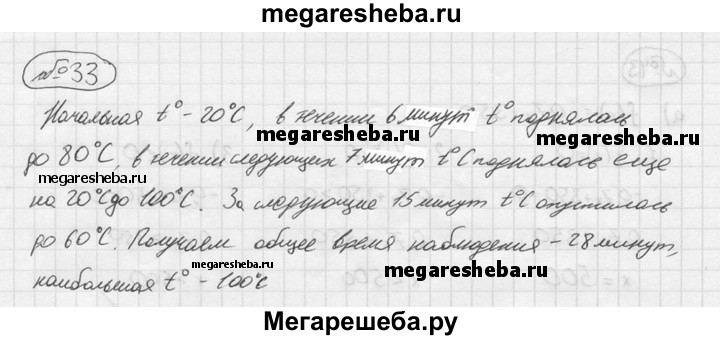 megaresheba.ru
№33
Начальная t° - 20°C, в течении 6 минут t° поднялась
megaresheba.ru
megaresheba.ru
до 80°C, в течении следующих 7 минут t°C поднялась еще
megaresheba.ru
на 20°C до 100°C. За следующие 15 минут t°C опустилась
до 60°C. Получаем общее время наблюдения - 28 минут,
megaresheba.ru
megaresheba.ru
наибольшая t° - 100°C
Мегарешеба.ру